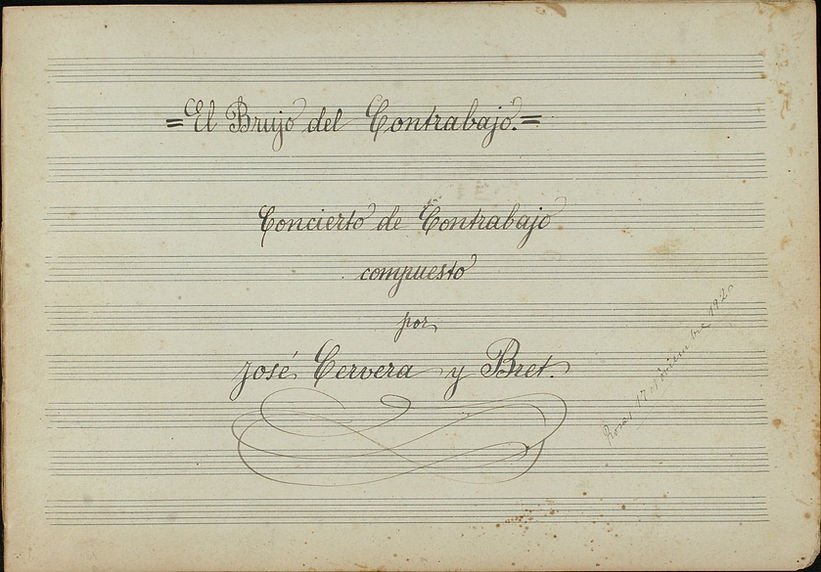 =El Brujo del Contrabajo.=
Concierto de Contrabajo
compuesto
por
José Cervera y Bret.
17 Noviembre